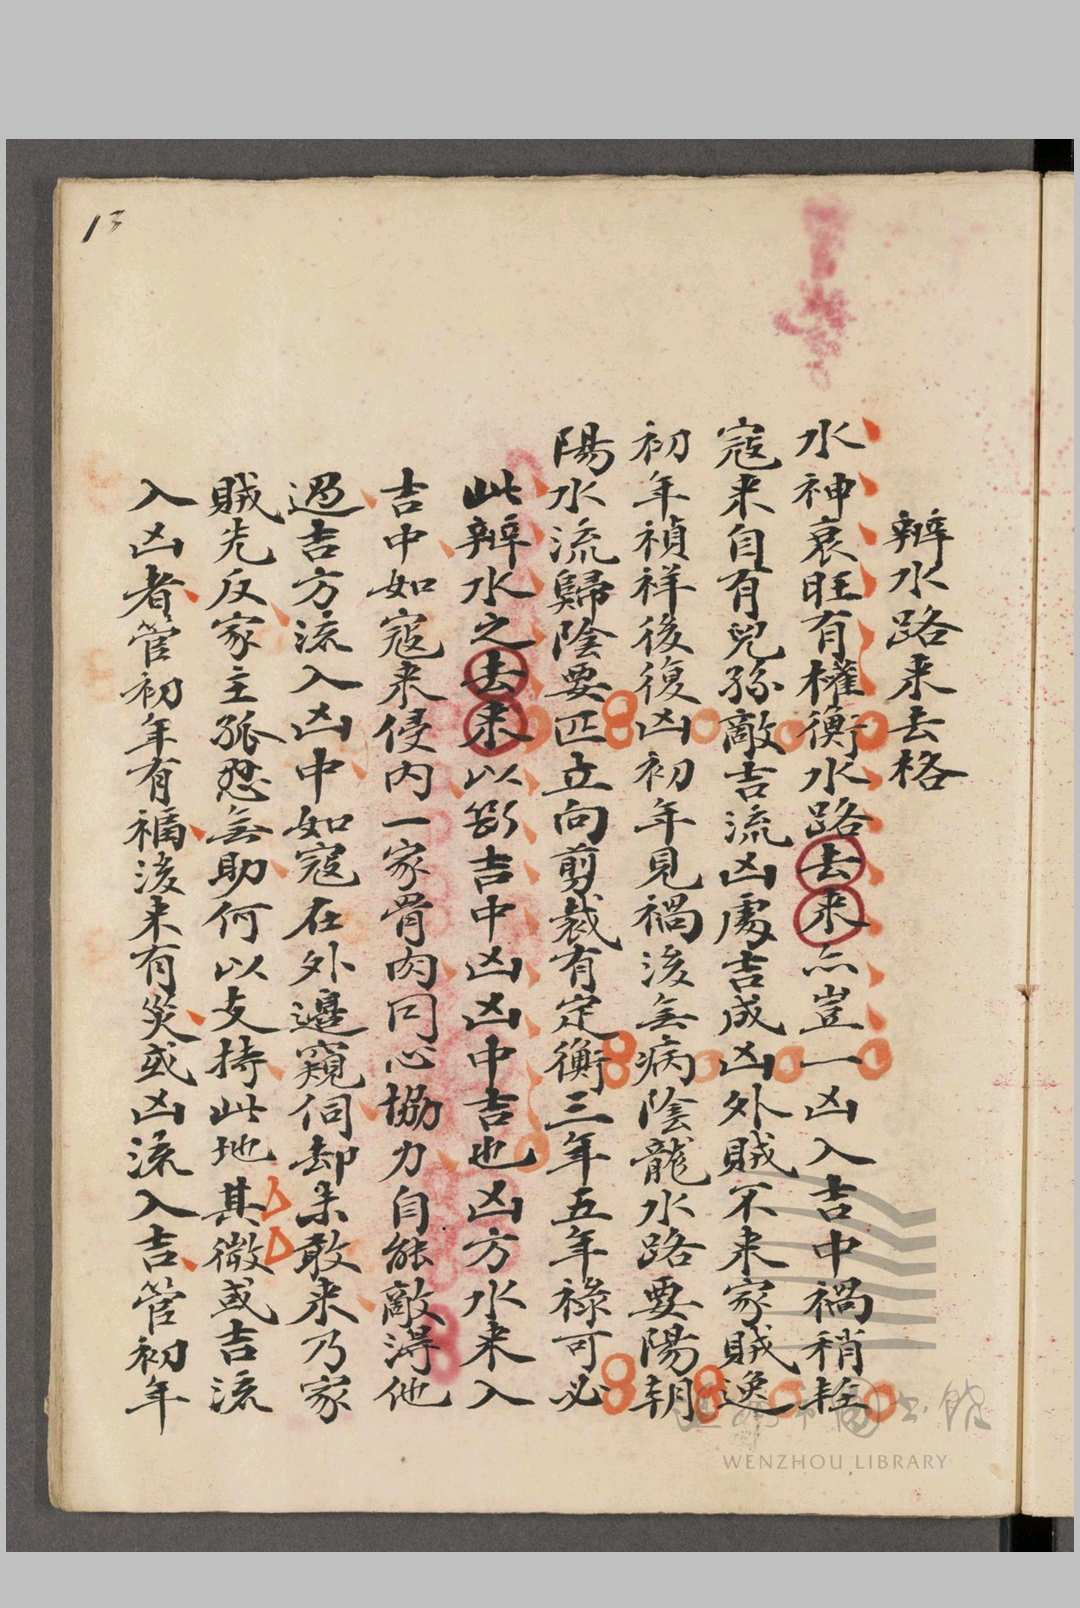 13
辦水路来去格
水神衰旺有權衡水路去来亦豈一凶入吉中禍稍輕
寇来自有兒孫敵吉流凶處吉成凶外賊不来家賊逸
初年禎祥後復凶初年見禍後無病陰龍水路要陽朝
陽水流歸陰要匹立向剪裁有定衡三年五年祿可必
此辨水之去来以斷吉中凶凶中吉也凶方水来入
吉中如寇来侵内一家骨肉同心協力自能敵淂他
過吉方流入凶中如寇在外邊窺伺却未敢来乃家
賊先反家主孤忍無助何以支持此地其微或吉流
入凶者管初年有福後来有災或凶流入吉管初年
温州市圖书馆
WENZHOU LIBRARY